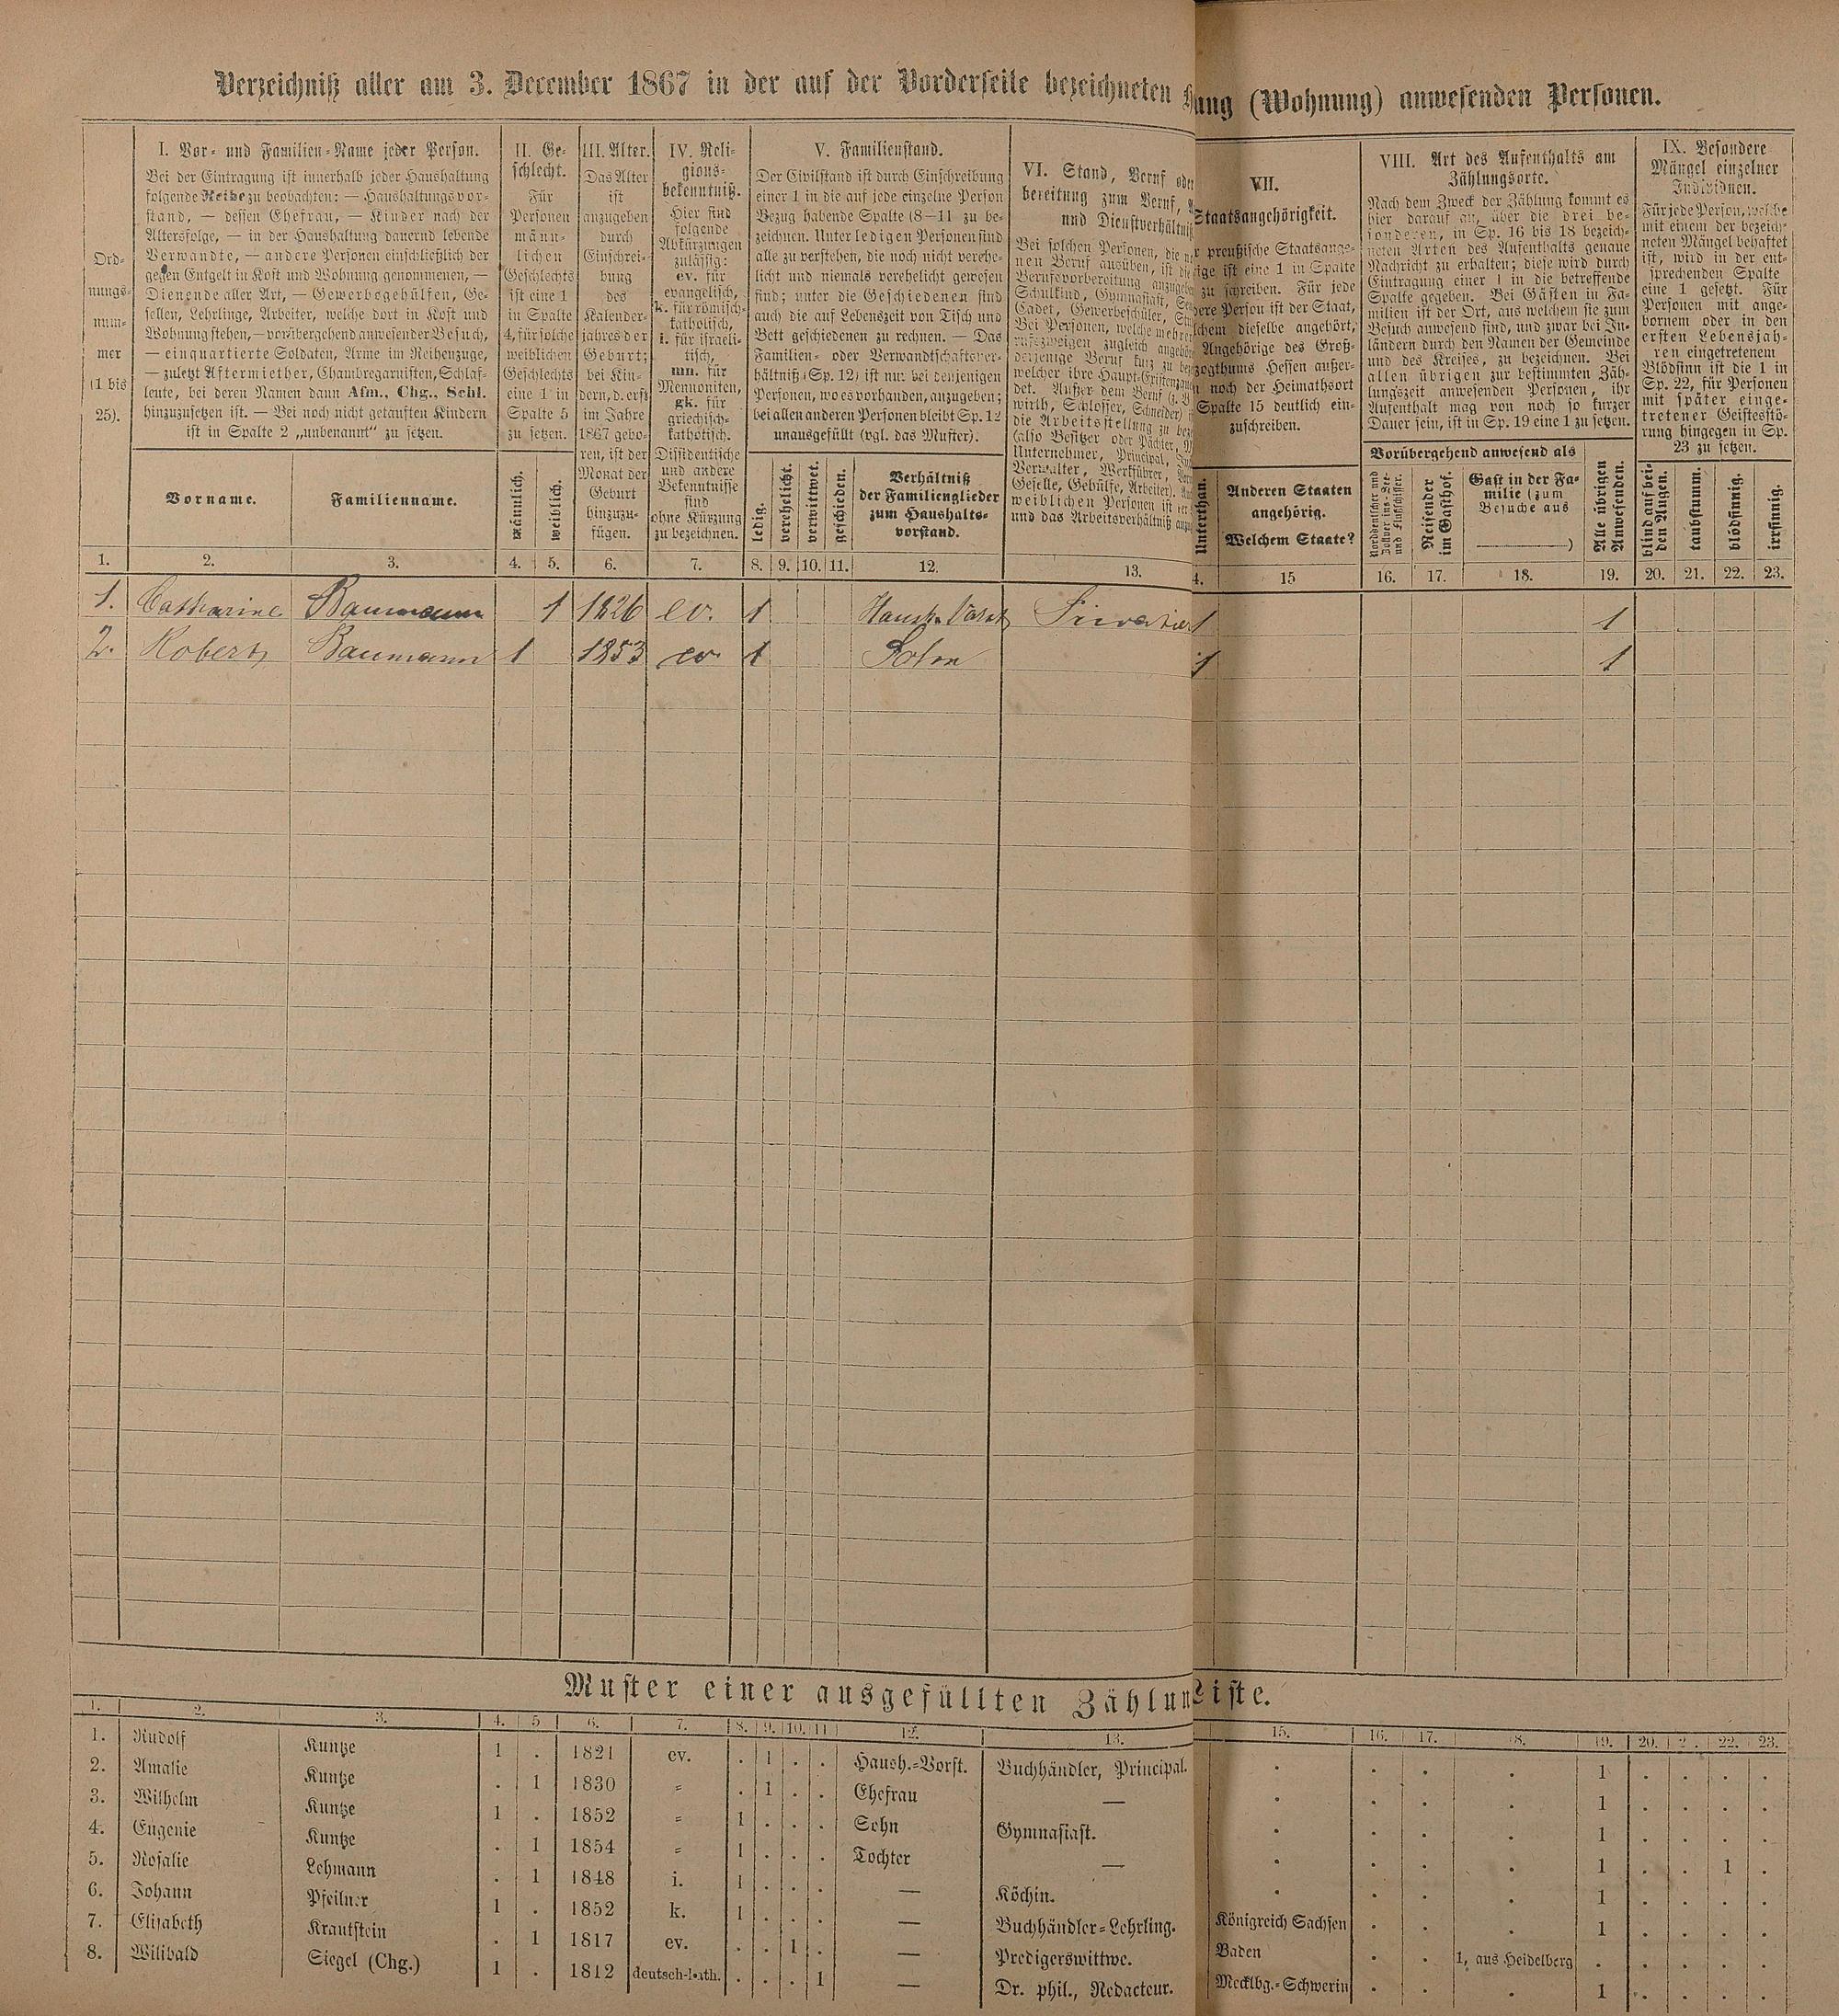 Verzeichniß aller am 3. December 1867 in der auf der Vorderseite bezeichneten
ung (Wohnung) anwesenden Personen.
Ord-
nungs-
num-
mer
(1 bis
25).
I. Vor- und Familien-Name jeder Person.
Bei der Eintragung ist innerhalb jeder Haushaltung
folgende Reihe zu beobachten: — Haushaltungsvor-
stand, — dessen Ehefrau, — Kinder nach der
Altersfolge, — in der Haushaltung dauernd lebende
Verwandte, — andere Personen einschließlich der
gegen Entgelt in Kost und Wohnung genommenen, —
Dienende aller Art, — Gewerbsgehülfen, Ge-
sellen, Lehrlinge, Arbeiter, welche dort in Kost und
Wohnung stehen, — vorübergehend anwesender Besuch,
— einquartierte Soldaten, Arme im Reihenzuge,
— zuletzt Aftermiether, Chambregarnisten, Schlaf-
leute, bei deren Namen dann Afm., Chg., Schl.
hinzuzusetzen ist. — Bei noch nicht getauften Kindern
ist in Spalte 2 „unbenannt“ zu setzen.
Vorname.
Familienname.
II. Ge-
schlecht.
Für
Personen
männ-
lichen
Geschlechts
ist eine 1
in Spalte
4, für solche
weiblichen
Geschlechts
eine 1 in
Spalte 5
zu setzen.
männlich.
weiblich.
III. Alter.
Das Alter
ist
anzugeben
durch
Einschrei-
bung
des
Kalender-
jahres der
Geburt;
bei Kin-
dern, d. erst
im Jahre
1867 gebo-
ren, ist der
Monat der
Geburt
hinzuzu-
fügen.
IV. Reli-
gions-
bekenntniß.
Hier sind
folgende
Abkürzungen
zulässig:
ev. für
evangelisch,
k. für römisch-
katholisch,
i. für israeli-
tisch,
mn. für
Mennoniten,
gk. für
griechisch-
katholisch.
Dissidentische
und andere
Bekenntnisse
sind
ohne Kürzung
zu bezeichnen.
V. Familienstand.
Der Civilstand ist durch Einschreibung
einer 1 in die auf jede einzelne Person
Bezug habende Spalte (8—11 zu be-
zeichnen. Unter ledigen Personen sind
alle zu verstehen, die noch nicht verehe-
licht und niemals verehelicht gewesen
sind; unter die Geschiedenen sind
auch die auf Lebenszeit von Tisch und
Bett geschiedenen zu rechnen. — Das
Familien- oder Verwandtschaftsver-
hältniß (Sp. 12) ist nur bei denjenigen
Personen, wo es vorhanden, anzugeben;
bei allen anderen Personen bleibt Sp. 12
unausgefüllt (vgl. das Muster).
ledig.
verehelicht.
verwittwet.
geschieden.
Verhältniß
der Familienglieder
zum Haushalts-
vorstand.
VI. Stand, Beruf oder
bereitung zum Beruf,
und Dienstverhältniß
Bei solchen Personen, die
nen Beruf ausüben, ist die
Berufsvorbereitung anzugeben
Schulkind, Gymnasiast,
Cadet, Gewerbeschüler,
Bei Personen, welche mehre
rufszweigen zugleich angehö
derjenige Beruf kurz zu be
welcher ihre Haupt-Existenz
det. Außer dem Beruf
wirth, Schlosser, Schneider)
die Arbeitsstellung zu
(also Besitzer oder Pächter,
Unternehmer, Principal,
Verwalter, Werkführer,
Geselle, Gehülfe, Arbeiter).
weiblichen Personen ist
und das Arbeitsverhältniß
VII.
Staatsangehörigkeit.
preußische Staatsange-
ige ist eine 1 in Spalte
zu schreiben. Für jede
dere Person ist der Staat,
chem dieselbe angehört,
Angehörige des Groß-
zogthums Hessen außer-
noch der Heimathsort
Spalte 15 deutlich ein-
zuschreiben.
Unterthan.
Anderen Staaten
angehörig.
Welchem Staate?
VIII. Art des Aufenthalts am
Zählungsorte.
Nach dem Zweck der Zählung kommt es
hier darauf an, über die drei be-
sonderen, in Sp. 16 bis 18 bezeich-
neten Arten des Aufenthalts genaue
Nachricht zu erhalten; diese wird durch
Eintragung einer 1 in die betreffende
Spalte gegeben. Bei Gästen in Fa-
milien ist der Ort, aus welchem sie zum
Besuch anwesend sind, und zwar bei In-
ländern durch den Namen der Gemeinde
und des Kreises, zu bezeichnen. Bei
allen übrigen zur bestimmten Zäh-
lungszeit anwesenden Personen, ihr
Aufenthalt mag von noch so kurzer
Dauer sein, ist in Sp. 19 eine 1 zu setzen.
Vorübergehend anwesend als
Norddeutscher und
Zollver.ins-See-
und Flußschiffer.
Reisender
im Gasthof.
Gast in der Fa-
milie (zum
Besuche aus
)
Alle übrigen
Anwesenden.
IX. Besondere
Mängel einzelner
Individuen.
Für jede Person, welche
mit einem der bezeich-
neten Mängel behaftet
ist, wird in der ent-
sprechenden Spalte
eine 1 gesetzt. Für
Personen mit ange-
bornem oder in den
ersten Lebensjah-
ren eingetretenem
Blödsinn ist die 1 in
Sp. 22, für Personen
mit später einge-
tretener Geistesstö-
rung hingegen in Sp.
23 zu setzen.
blind auf bei-
den Augen.
taubstumm.
blödsinnig.
irrsinnig.
1. 2. 3. 4. 5. 6. 7. 8. 9. 10. 11. 12. 13. 4. 15 16. 17. 18. 19. 20. 21. 22. 23.
1. Catharine Baumann 1 1826 ev. 1 Haush. Vorst 1 1
2. Robert Baumann 1 1853 ev 1 Sohn 1 1
Muster einer ausgefüllten Zählun
Liste.
1. 2. 3. 4. 5 6. 7. 8. 9. 10. 11 12. 13. 15. 16. 17. 18. 19. 20. 2. 22. 23.
1. Rudolf Kuntze 1 . 1821 ev. . 1 . . Haush.-Vorst. Buchhändler, Principal. . . . . 1 . . . .
2. Amalie Kuntze . 1 1830 = . 1 . . Ehefrau — . . . . 1 . . . .
3. Wilhelm Kuntze 1 . 1852 = 1 . . . Sohn Gymnasiast. . . . . 1 . . . .
4. Eugenie Kuntze . 1 1854 = 1 . . . Tochter — . . . . 1 . . 1 .
5. Rosalie Lehmann . 1 1848 i. 1 . . . — Köchin. . . . . 1 . . . .
6. Johann Pfeilner 1 . 1852 k. 1 . . . — Buchhändler-Lehrling. Königreich Sachsen . . . 1 . . . .
7. Elisabeth Krautstein . 1 1817 ev. . . 1 . — Predigerswittwe. Baden . . 1, aus Heidelberg . . . . .
8. Wilibald Siegel (Chg.) 1 . 1812 deutsch-kath. . . . 1 — Dr. phil., Redacteur. Mecklbg.-Schwerin . . . 1 . . . .